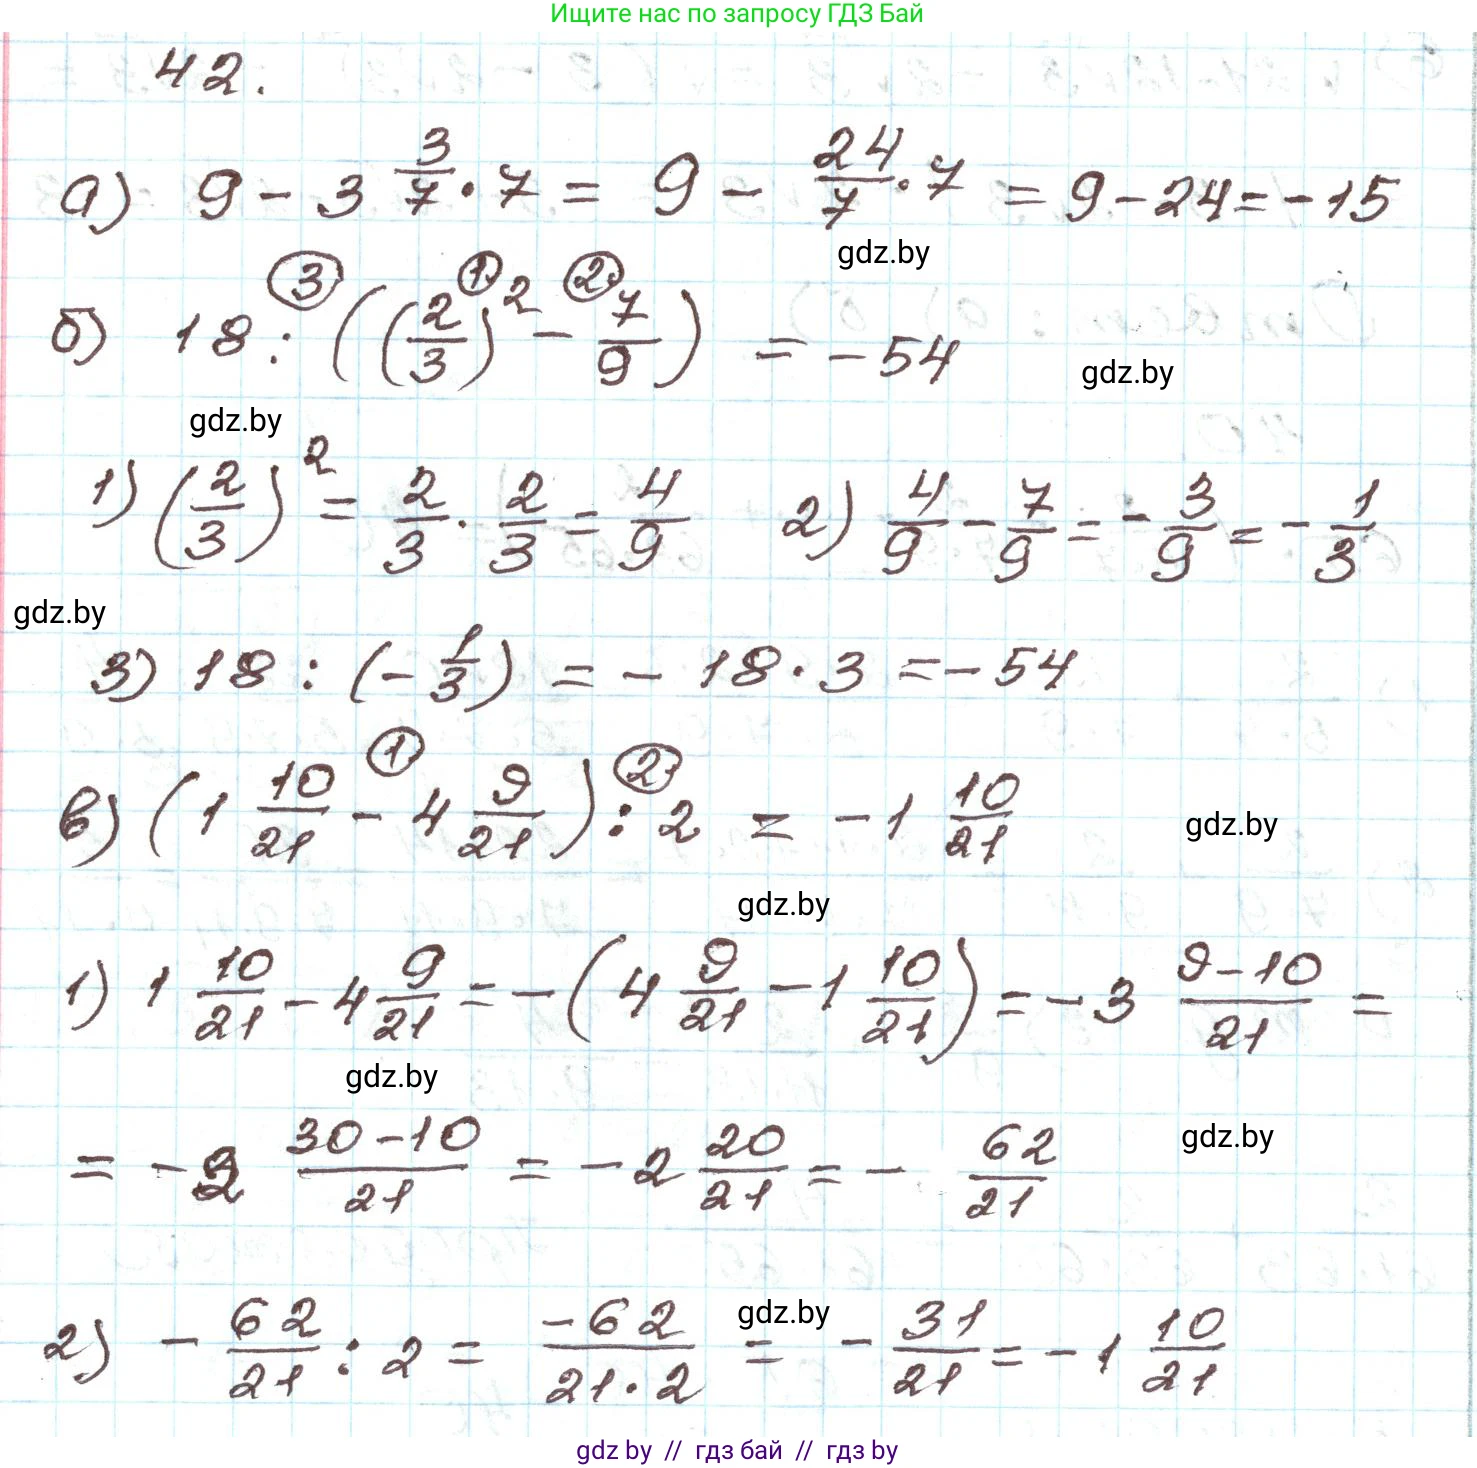 Ищите нас по запросу ГДЗ Бай
42.
а) 9 - 3 3/7 · 7 = 9 - 24/7 · 7 = 9 - 24 = - 15
gdz.by
③ ① ②
б) 18 : ((2/3)² - 7/9) = - 54
gdz.by
gdz.by
1) (2/3)² = 2/3 · 2/3 = 4/9 2) 4/9 - 7/9 = - 3/9 = - 1/3
gdz.by
3) 18 : (- 1/3) = - 18 · 3 = - 54
① ②
в) (1 10/21 - 4 9/21) : 2 = - 1 10/21
gdz.by
gdz.by
1) 1 10/21 - 4 9/21 = - (4 9/21 - 1 10/21) = - 3 (9 - 10)/21 =
gdz.by
= - 2 (30 - 10)/21 = - 2 20/21 = - 62/21
gdz.by
gdz.by
2) - 62/21 : 2 = (- 62)/(21 · 2) = - 31/21 = - 1 10/21
gdz by // гдз бай // гдз by